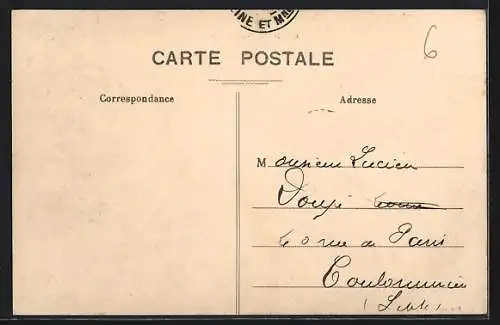 INE ET M
6
CARTE POSTALE
Correspondance
Adresse
Monsieur Lucien
rue de Paris
Coulommiers